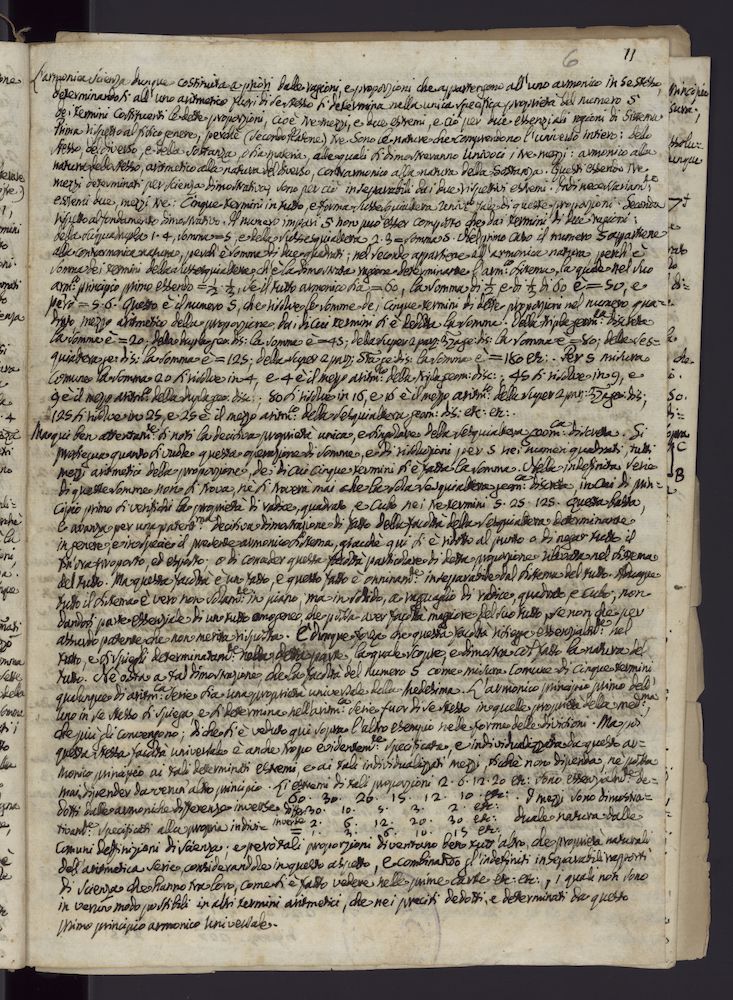 6 11
L'armonica scienza dunque costituita a priori dalle ragioni, e proporzioni che appartengono all'uno armonico in se stesso
determinandosi all'uno aritmetico fuori di se stesso si determina nella unica specifica proprietà del numero 5
dei termini costituenti le dette proporzioni, cioè tre mezzi, e due estremi, e ciò per due essenziali ragioni di Sistema
Prima rispetto al fisico genere, perché (secondo Platone) tre sono le nature che comprendono l'universo intiero: dello
stesso, del diverso, e della sostanza, o sia materia, alle quali si dimostreranno univoci i tre mezzi: armonico alla
natura dello stesso, aritmetico alla natura del diverso, contrarmonico alla natura della sostanza. Questi essendo tre
mezzi determinati per scienza dimostrativa, sono per ciò inseparabili dai due rispettivi estremi. Indi necessariam.te
estremi due, mezzi tre: Cinque termini in tutto, e forma sottosesquialtera di queste proporzioni. Seconda
rispetto al fondamento dimostrativo. Il numero impari 5 non può esser composto che dai termini di due ragioni:
della subquadrupla 1. 4, somma = 5, e della sottosesquialtera 2. 3 = somma 5. Nel primo caso il numero 5 appartiene
alla contrarmonica natura, perché è somma di due quadrati; nel secondo appartiene all'armonica natura perché è
somma dei termini della sottosesquialtera che è la dimostrata ragione determinante l'arm.co sistema, la quale nel suo
arm.co principio primo essendo = 1/2. 1/3, se il tutto armonico sia = 60, la somma di 1/2 e di 1/3 di 60 è = 50, e
però = 5. 6. Questo è il numero 5, che risolve le somme dei cinque termini di dette proporzioni nel numero qua=
drato mezzo aritmetico della proporzione, dai di cui termini si è dedotta la somma. Della tripla geom.ca discreta
la somma è = 20; della dupla geo: dis: la somma è = 45; della super 2 parz: 3 geo: dis: la somma è = 80; della ses=
quialtera geo: dis: la somma è = 125; della super 2 parz: 5 geo: dis: la somma è = 180 etc:. Per 5 misura
comune la somma 20 si risolve in 4, e 4 è il mezzo aritm.co della tripla geom: disc:. 45 si risolve in 9, e
9 è il mezzo aritm.co della dupla geo: disc:. 80 si risolve in 16, e 16 è il mezzo aritm.co della super 2 par: geo: dis;
125 si risolve in 25, e 25 è il mezzo aritm.co della sesquialtera geom: dis: etc: etc:.
Ma qui ben attentam.te si noti la decisiva proprietà unica, e singolare della sesquialtera geom.ca discreta. Si
prosiegua quanto si vuole questa operazione di somme, e di risoluzioni per 5 nei numeri quadrati, tutti
mezzi aritmetici della proporzione, de' di cui cinque termini si è fatta la somma. Nella indefinita serie
di queste somme non si trova, né si troverà mai che la sola sesquialtera geom.ca discreta, in cui di prin=
cipio primo si verifichi la proprietà di radice, quadrato, e cubo nei tre termini 5. 25. 125. Questa basta,
e avanza per una decisiva dimostrazione di fatto della facoltà della sesquialtera determinante
in genere, e in specie il presente armonico sistema, giacché qui si è ridotto al punto o di negar tutto il
fin ora proposto, ed esposto, o di conceder questa facoltà particolare di detta proporzione nel sistema
del tutto. Ma questa facoltà è un fatto, e questo fatto è onninam.te inseparabile dal sistema del tutto. Adunque
tutto il sistema è vero non solam.te in piano, ma in solido, a ragguaglio di radice, quadrato e cubo, non
dandosi parte essenziale di un tutto omogeneo, che possa aver facoltà maggiore del suo tutto, se non che per
assurdo patente che non merita risposta. È dunque forza che questa facoltà risieda essenzialm.te nel
tutto, e si spieghi determinatam.te nella detta parte la quale scopre, e dimostra col fatto la natura del
tutto. Né osta a tal dimostrazione, che la facoltà del numero 5 come misura comune di cinque termini
qualunque di aritm.ca serie sia una proprietà universale della medesima. L'armonico principio primo dell'
uno in se stesso si spiega, e si determina nell'aritm.ca serie fuor di se stesso in quelle proprietà della med.ma
che più di convengono; di che si è veduto qui sopra l'altro esempio nelle forme delle divisioni. Ma poi
questa stessa facoltà universale è anche troppo evidentem.te specificata, e individualizzata da questo ar=
monico principio ai tali determinati estremi, e ai tali individualizzati mezzi, sicché non dipenda, né possa
mai dipender da verun altro principio. Gli estremi di tali proporzioni 2. 6. 12. 20 etc: sono essenzialm.te de=
dotti dalle armoniche differenze inverse 60. 30. 20. 15. 12. 10 etc: I mezzi sono dimostra=
Diff. 30. 10. 5. 3. 2 etc:
tivam.te specificati alla propria indivi= inverse 2. 6. 12. 20. 30 etc: duale natura dalle
= 1. 3. 6. 10. 15 etc:
comuni deffinizioni di scienza; e però tali proporzioni diventano ben tutt'altro, che proprietà naturali
dell'aritmetica serie, considerandole in questo aspetto, e combinando gl'indefiniti inseparabili rapporti
di scienza che hanno tra loro, come si è fatto vedere nelle prime carte etc: etc:, i quali non sono
in verun modo possibili in altri termini aritmetici, che nei precisi dedotti, e determinati da questo
primo principio armonico universale.